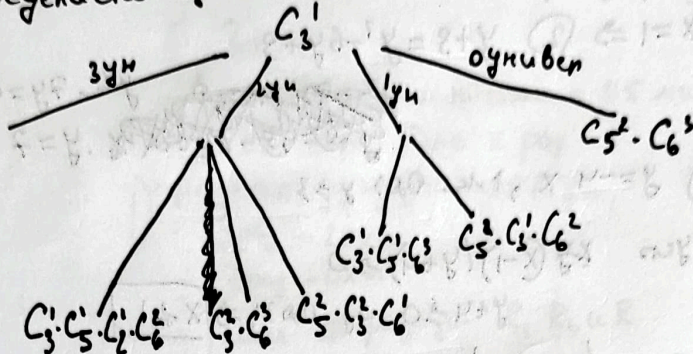 C₃¹
3ун
2ун
1ун
0универ
C₅² · C₆³
C₃¹ · C₅¹ · C₆³
C₅² · C₃¹ · C₆²
C₃¹ · C₅¹ · C₂¹ · C₆²
C₃² · C₆³
C₅² · C₃² · C₆¹